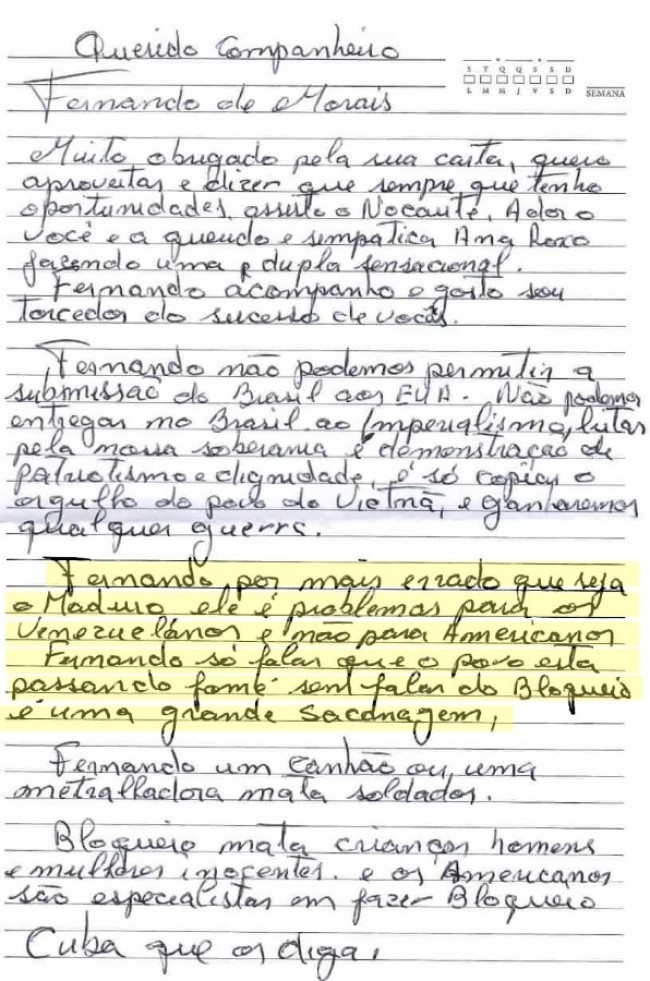 Querido Companheiro
S T Q Q S S D
L M M J V S D SEMANA
Fernando de Morais
Muito obrigado pela sua carta, quero
aproveitar e dizer que sempre que tenho
oportunidades, assisto o Nocaute, Adoro
você e a querida e simpática Ana Roxo
fazendo uma dupla sensacional.
Fernando acompanho e gosto sou
torcedor do sucesso de vocês.
Fernando não podemos permitir a
submissão do Brasil aos EUA. Não podemos
entregar no Brasil ao Imperialismo, lutar
pela nossa soberania é demonstração de
patriotismo e dignidade, é só copiar o
orgulho do povo do Vietnã, e ganharemos
qualquer guerra.
Fernando por mais errado que seja
o Maduro ele é problemas para os
Venezuelanos e não para Americanos
Fernando só falar que o povo esta
passando fome sem falar do Bloqueio
é uma grande sacanagem,
Fernando um canhão ou uma
metralhadora mata soldados.
Bloqueio mata crianças homens
e mulheres inocentes. e os Americanos
são especialistas em fazer Bloqueio
Cuba que os diga,